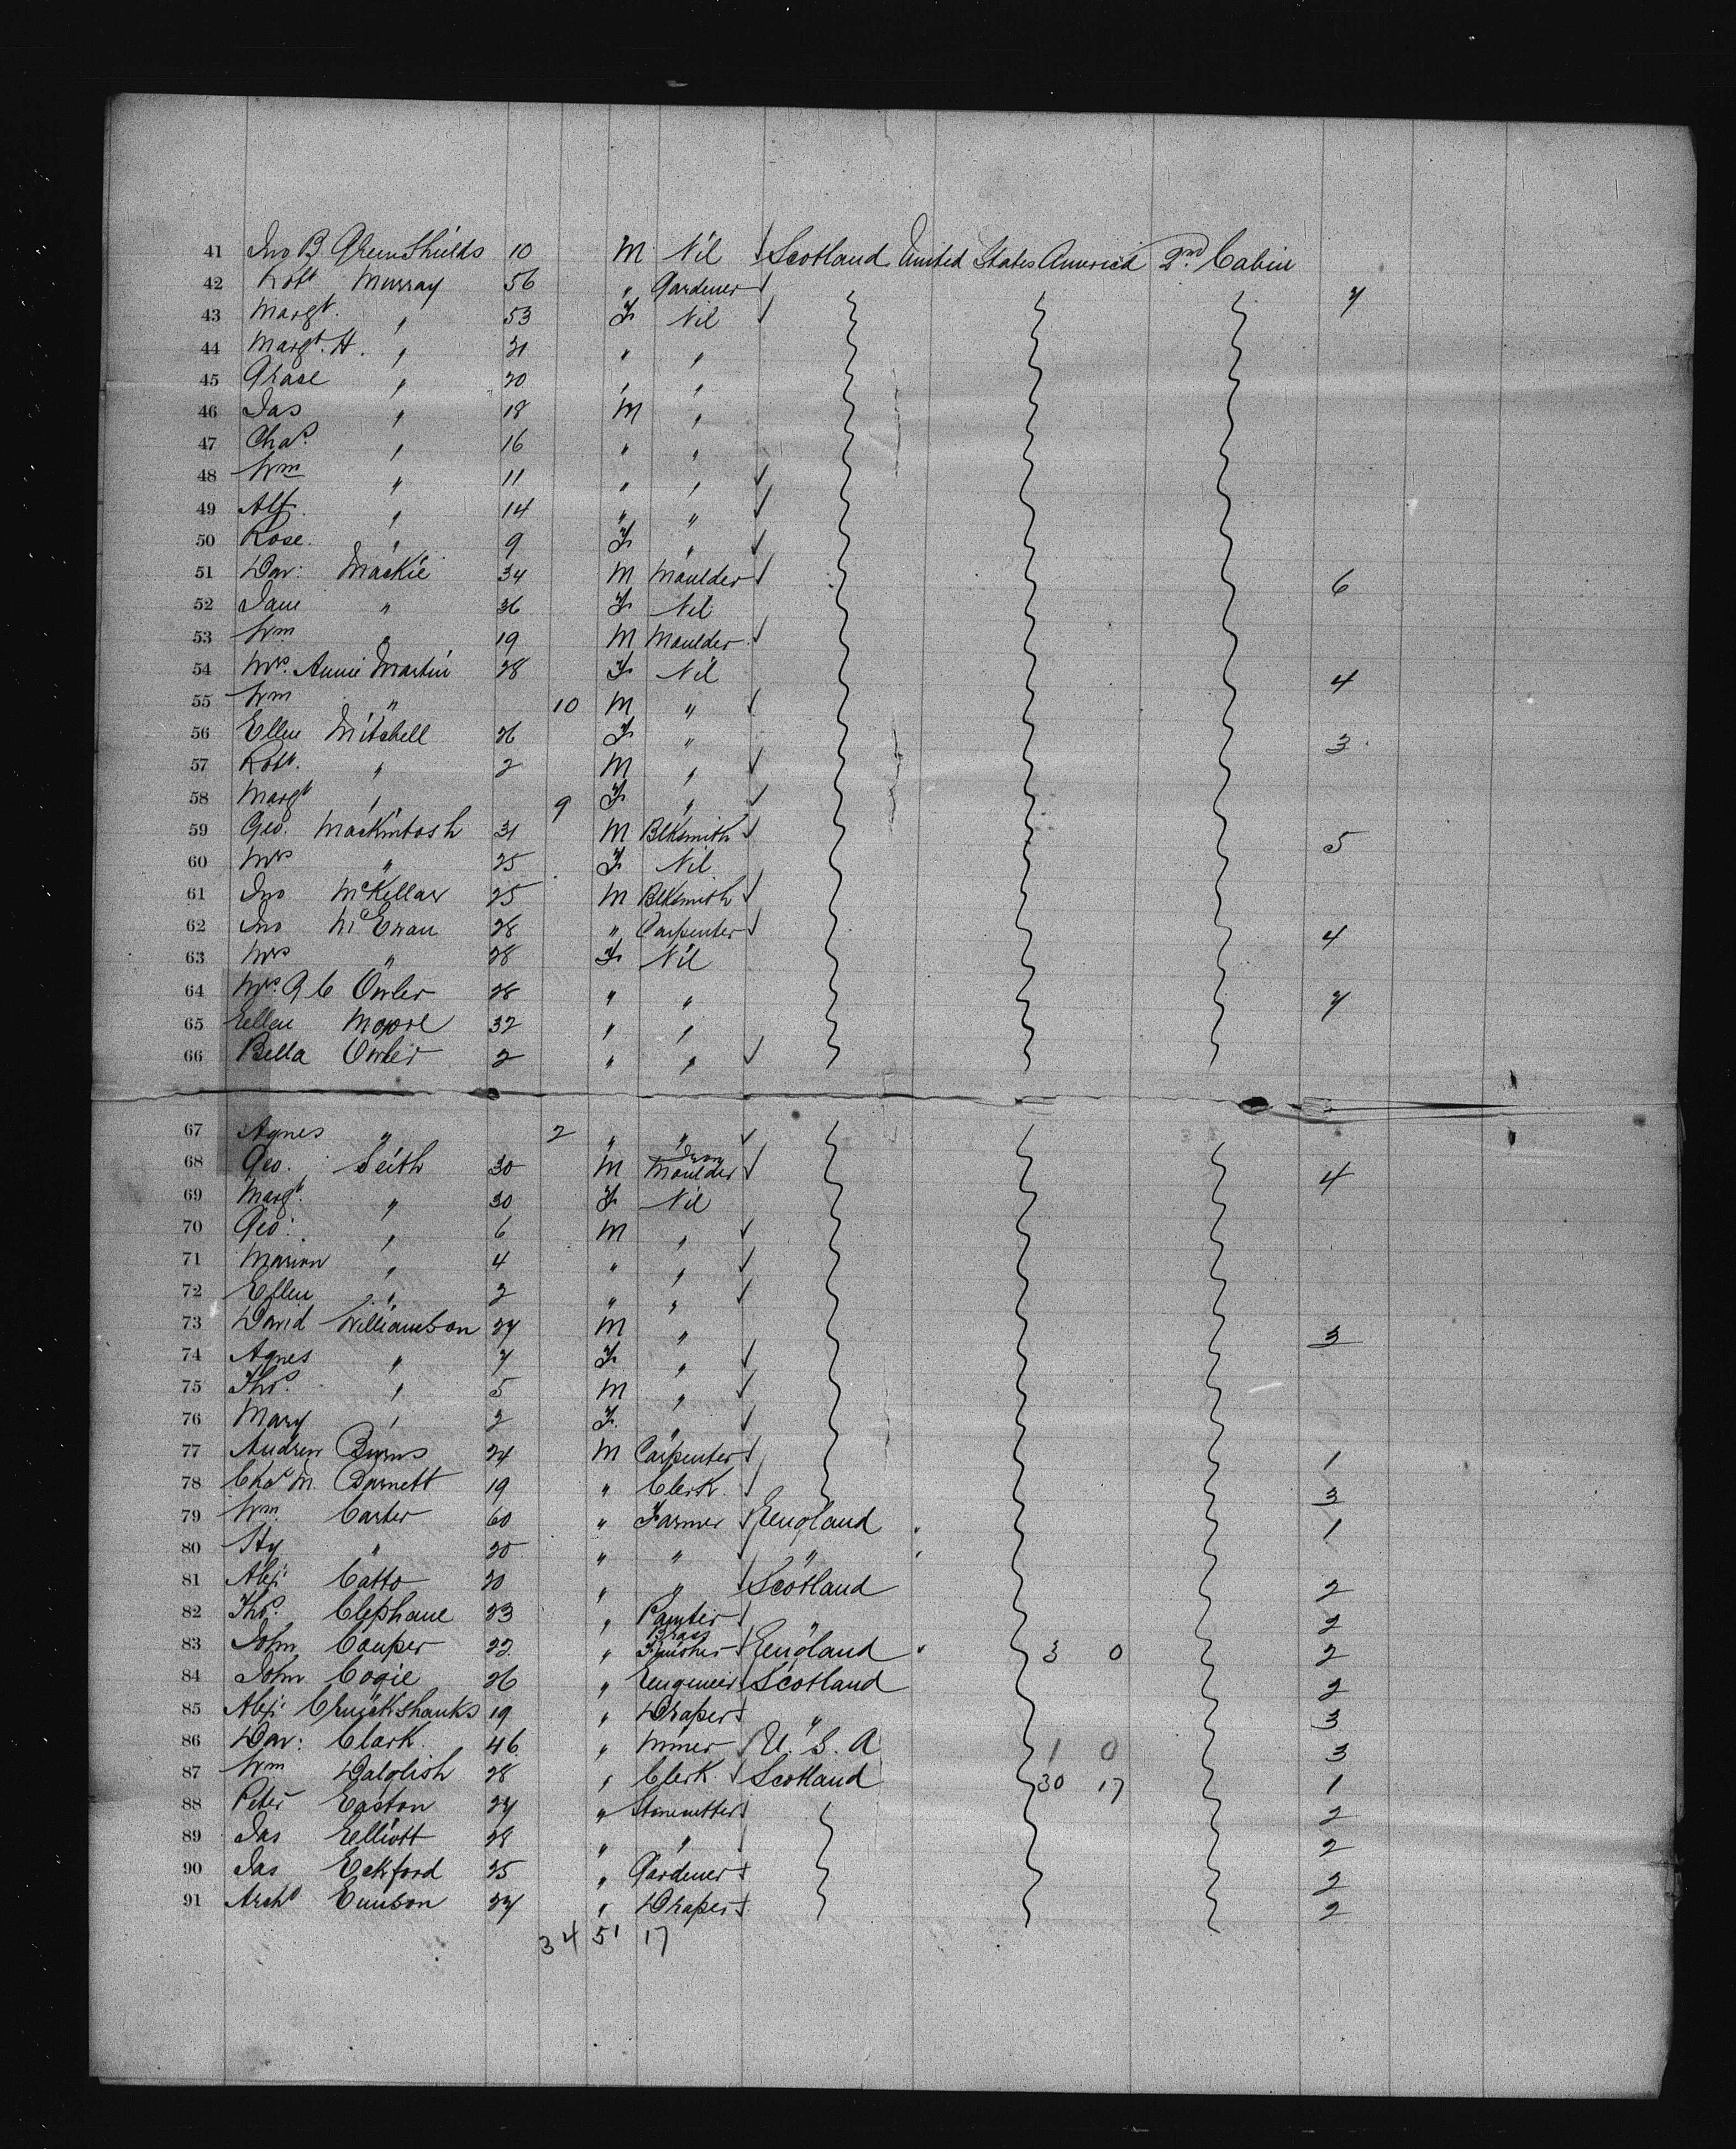 41 Jno B Greenshields 10 M Nil Scotland United States America 2nd Cabin
42 Robt Murray 56 " Gardener 7
43 Margt. " 53 F Nil
44 Margt. H. " 21 " "
45 Grace " 20 " "
46 Jas " 18 M "
47 Chas. " 16 " "
48 Wm " 11 " "
49 Alf. " 14 " "
50 Rose. " 9 F "
51 Dav: Mackie 34 M Moulder 6
52 Jane " 36 F Nil
53 Wm " 19 M Moulder
54 Mrs. Annie Martin 28 F Nil 4
55 Wm " 10 M "
56 Ellen Mitchell 26 F " 3
57 Robt. " 2 M "
58 Margt " 9 F "
59 Geo. Mackintosh 31 M Blksmith 5
60 Mrs " 25 F Nil
61 Jno McKellar 25 M Blksmith
62 Jno McEwan 28 " Carpenter 4
63 Mrs " 28 F Nil
64 Mrs. G C Owler 28 " " 7
65 Ellen Moore 32 " "
66 Bella Owler 2 " "
67 Agnes " 2 " "
68 Geo. Seith 30 M Iron Moulder 4
69 Margt. " 30 F Nil
70 Geo: " 6 M "
71 Marion " 4 " "
72 Ellen " 2 " "
73 David Williamson 27 M " 3
74 Agnes " 7 F "
75 Thos. " 5 M "
76 Mary " 2 F. "
77 Andrew Burns 24 M Carpenter 1
78 Chas M. Barnett 19 " Clerk. 3
79 Wm. Carter 60 " Farmer England 1
80 Hy " 20 " " "
81 Alex: Catto 20 " " Scotland 2
82 Thos. Clephane 23 " Painter " 2
83 John Couper 22 " Brass Finisher England 3 0 2
84 John Cogie 26 " Engineer Scotland 2
85 Alex: Cruickshanks 19 " Draper " 3
86 Dav: Clark 46 " Miner U. S. A 1 0 3
87 Wm Dalglish 28 " Clerk Scotland 30 17 1
88 Peter Easton 27 " Stonecutter 2
89 Jas Elliott 28 " " 2
90 Jas Eckford 25 " Gardener 2
91 Archd Eunson 27 " Draper 2
34 51 17